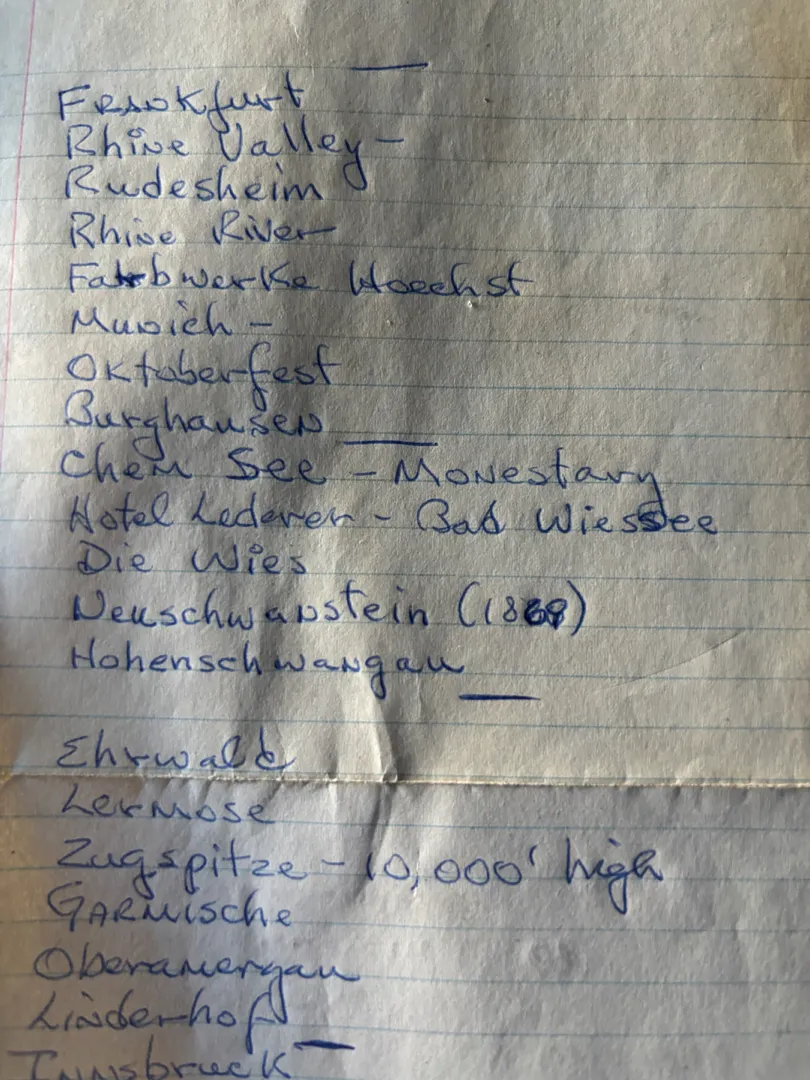 Frankfurt
Rhine Valley -
Rudesheim
Rhine River
Farbwerke Hoechst
Munich -
Oktoberfest
Burghausen
Chem See - Monestary
Hotel Lederer - Bad Wiessee
Die Wies
Neuschwanstein (1869)
Hohenschwangau
Ehrwald
Lermose
Zugspitze - 10,000' high
Garmische
Oberamergau
Linderhof
Innsbruck